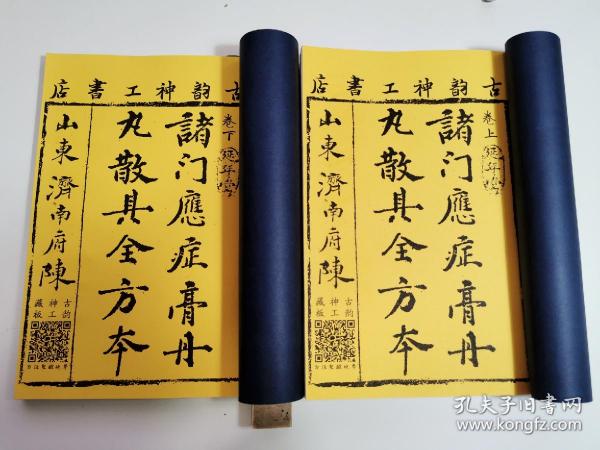 古韵神工書店
卷下
諸门應症膏丹
丸散具全方本
山東濟南府陳
古韵
神工
藏板
古韵神工書店
卷上
諸门應症膏丹
丸散具全方本
古韵
神工
藏板
孔夫子旧书网
www.kongfz.com